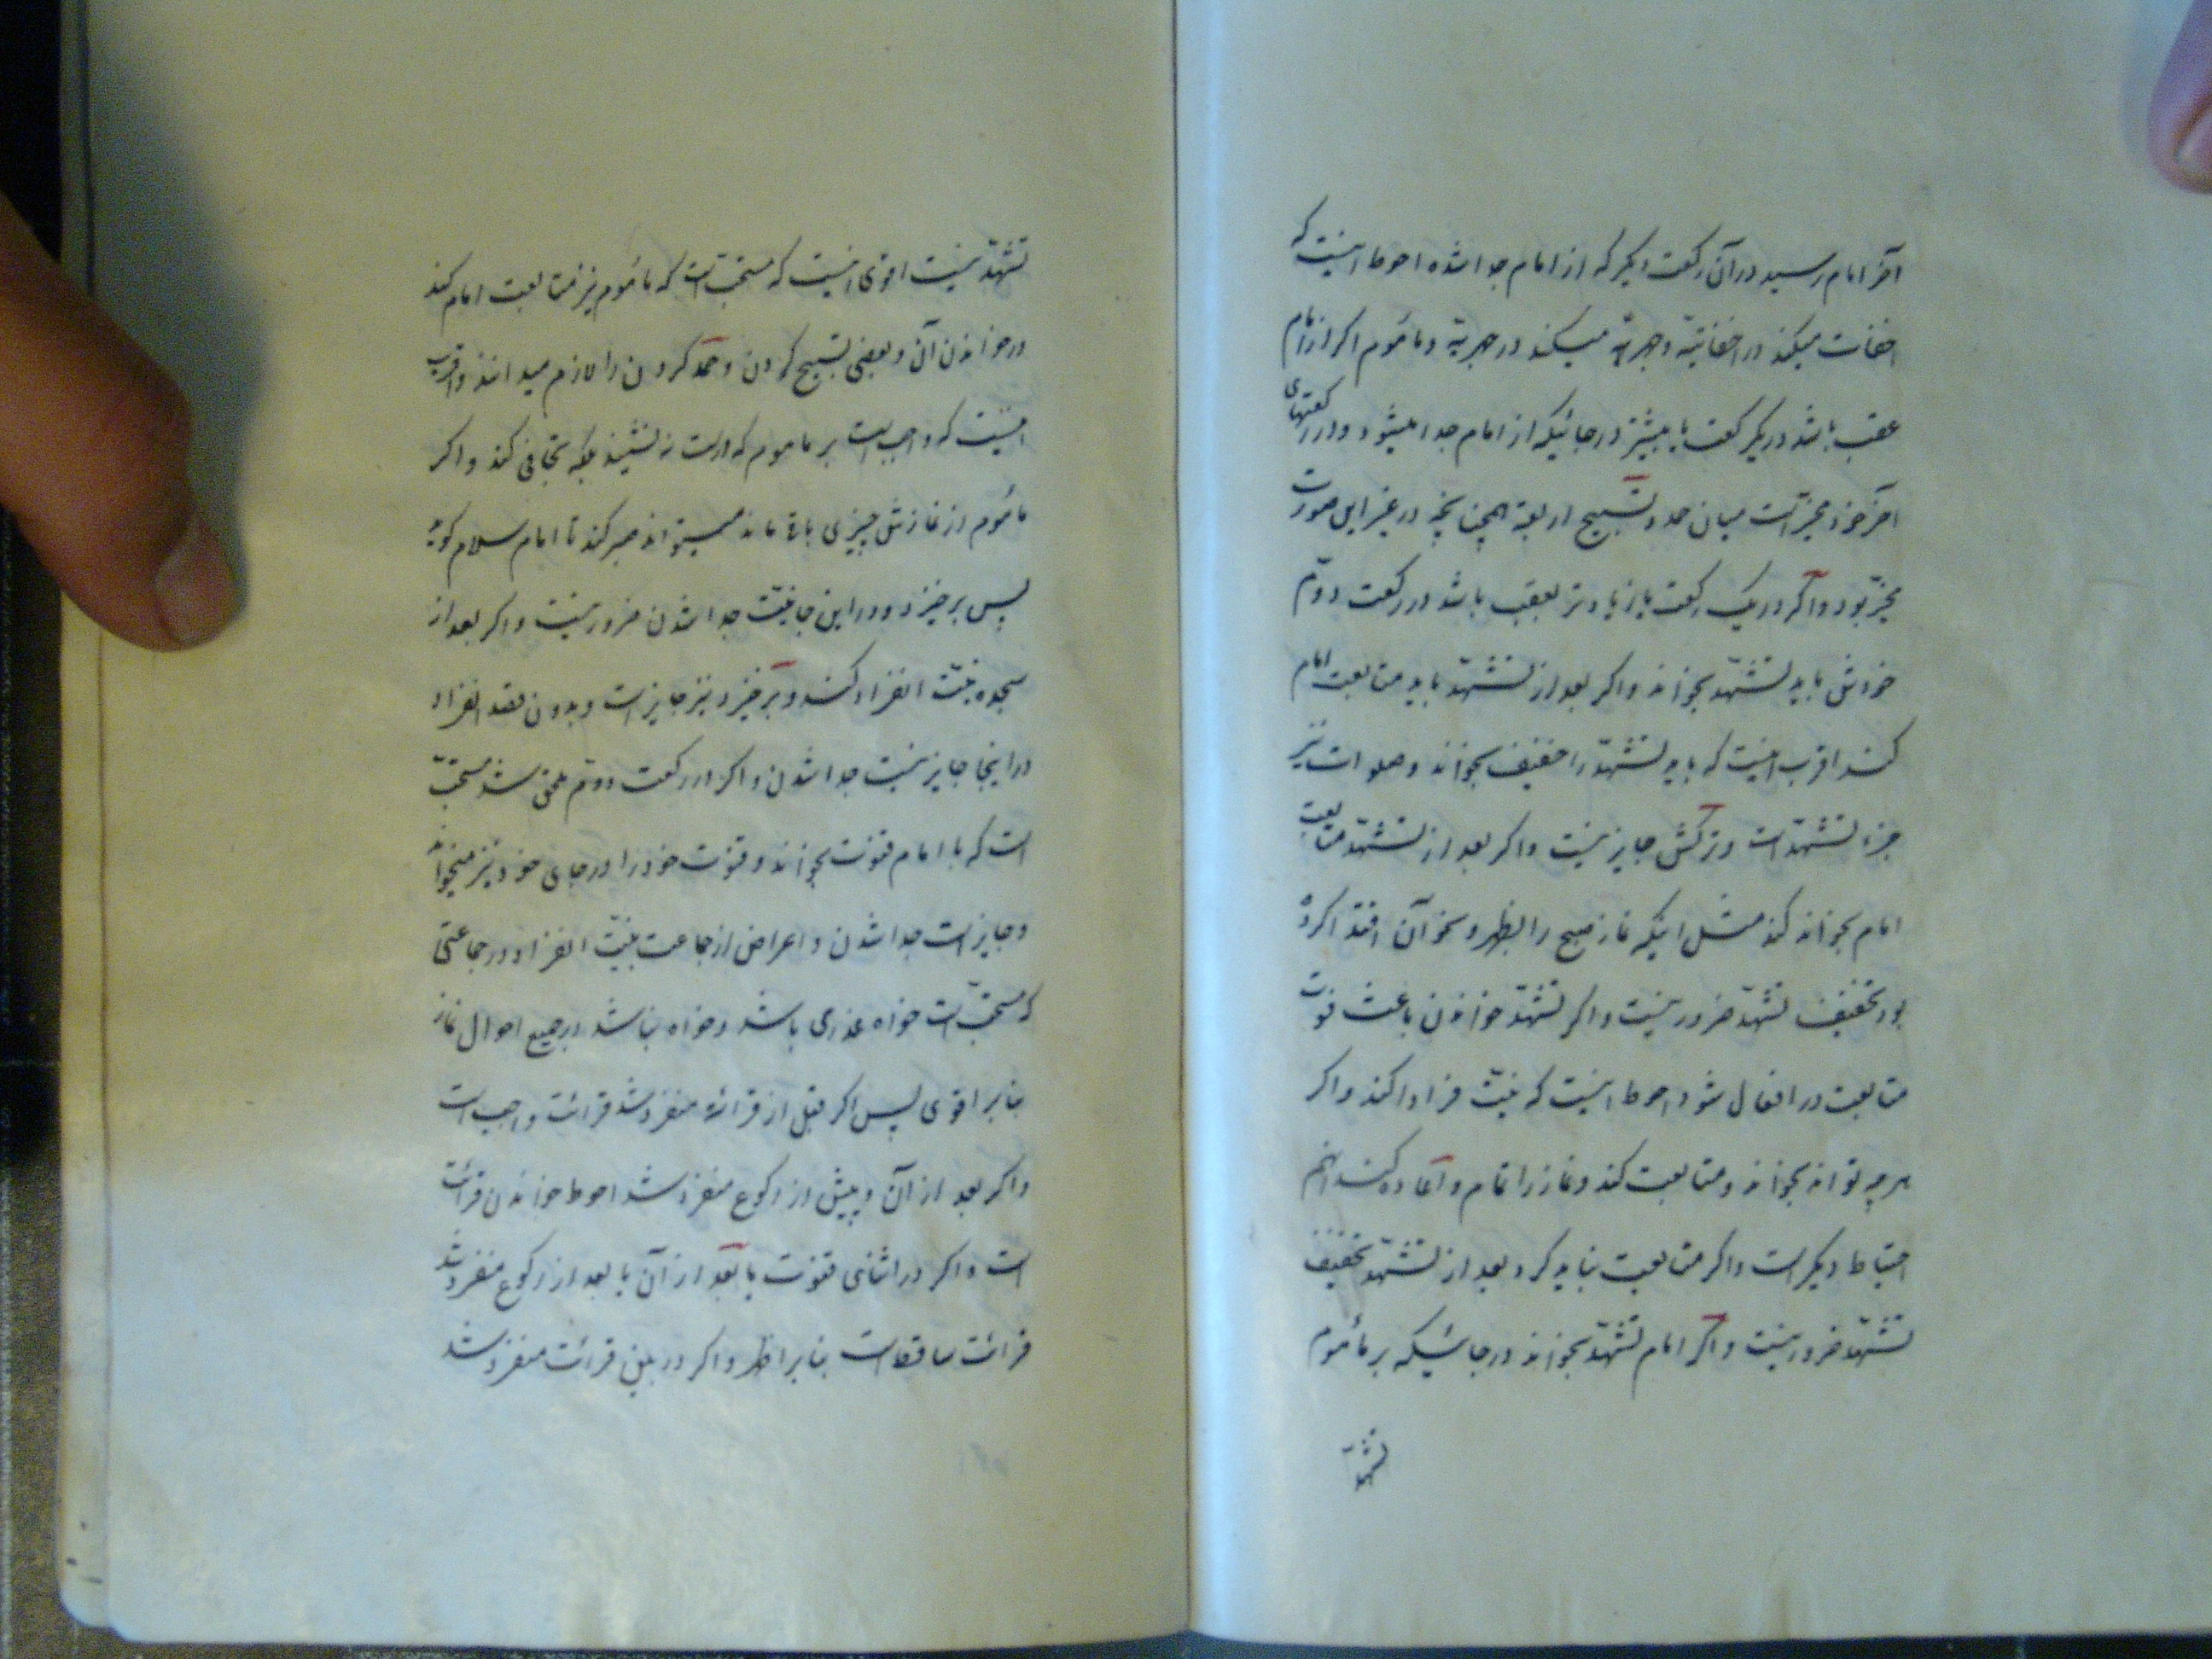 آخر امام رسید در آن رکعت دیگر که از امام جدا شده احوط اینست که
اخفات میکند در اخفاتیّه و جهر میکند در جهریّه و مأموم اگر از امام
عقب باشد در یکرکعت یا بیشتر در جائیکه از امام جدا میشود و در رکعتهای
آخر خود مخیّر است میان حمد و تسبیح اربعه همچنانچه در غیر این صورت
مخیّر بود و اگر در یک رکعت یا زیادتر بعقب باشد در رکعت دوّم
خودش باید تشهّد بخواند و اگر بعد از تشهّد باید متابعت امام
کند اقرب اینست که باید تشهّد را خفیف بخواند و صلوات نیز
جزء تشهّد است و ترکش جایز نیست و اگر بعد از تشهّد متابعت
امام بخواند کند مثل اینکه نماز صبح را بظهر و نحو آن اقتدا کرده
بود تخفیف تشهّد ضرور نیست و اگر تشهّد خواندن باعث فوت
متابعت در افعال شود احوط اینست که نیّت فرادا کند و اگر
هرچه تواند بخواند و متابعت کند و نماز را تمام و اعاده کند آنهم
احتیاط دیگر است و اگر متابعت نباید کرد بعد از تشهّد تخفیف
تشهّد ضرور نیست و اگر امام تشهّد بخواند در جائیکه بر مأموم
تشهّد
تشهّد نیست اقوی اینست که مستحبّ است که مأموم نیز متابعت امام کند
در خواندن آن و بعضی تسبیح کردن و حمد کردن را لازم میدانند و اقرب
اینست که واجب است بر مأموم که درست ننشیند بلکه تجافی کند و اگر
مأموم از نمازش چیزی باقی ماند میتواند صبر کند تا امام سلام گوید
پس برخیزد و در این جا نیّت جدا شدن ضرور نیست و اگر بعد از
سجده نیّت انفراد کند و برخیزد نیز جایز است و بدون قصد انفراد
در اینجا جایز نیست جدا شدن و اگر در رکعت دوّم ملحق شد مستحبّ
است که با امام قنوت بخواند و قنوت خود را در جای خود نیز میخواند
و جایز است جدا شدن و اعراض از جماعت بنیّت انفراد در جماعتی
که مستحبّ است خواه عذری باشد و خواه نباشد در جمیع احوال نماز
بنا بر اقوی پس اگر قبل از قرائة منفرد شد قرائت واجب است
و اگر بعد از آن و پیش از رکوع منفرد شد احوط خواندن قرائت
است و اگر در اثنای قنوت یا بعد از آن یا بعد از رکوع منفرد شد
قرائت ساقط است بنا بر اظهر و اگر در بین قرائت منفرد شد